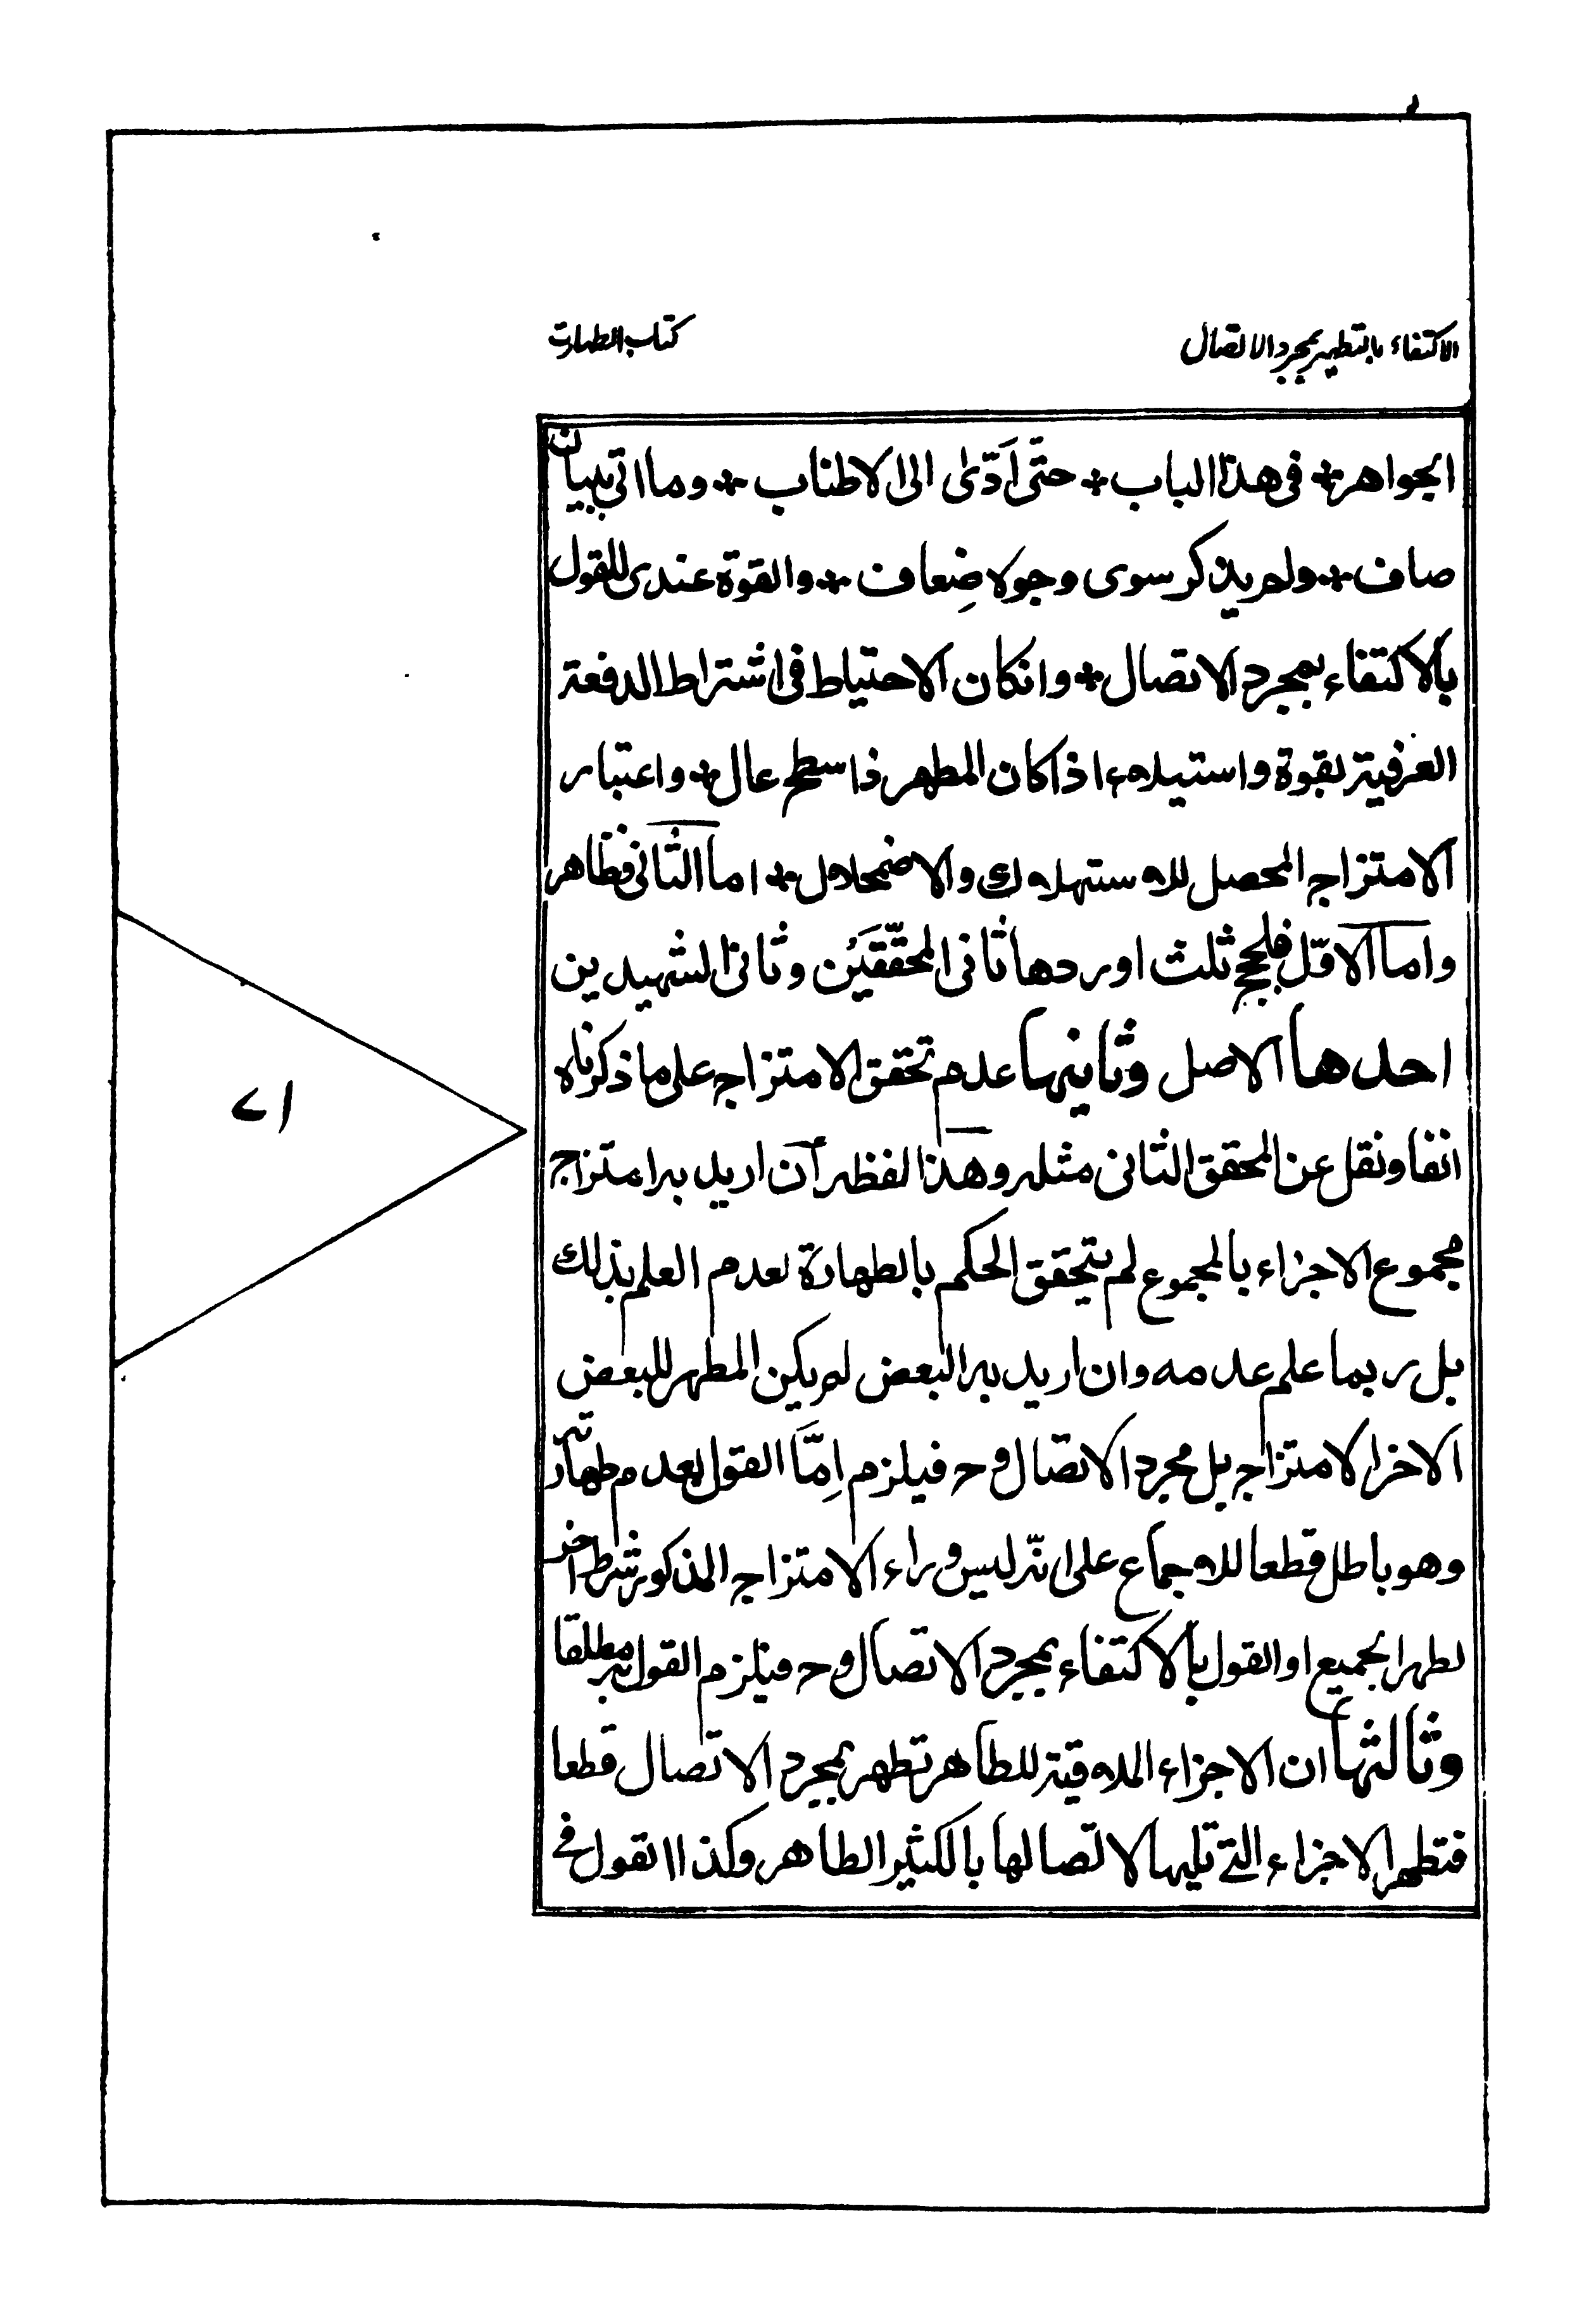 الاكتفاء بالتطهير بمجرد الاتصال
كتاب الطهارت
الجواهر * فى هذا الباب * حتّى اَدّىٰ الى الاطناب * وما اتى ببيان
صاف * ولم يذكر سوى وجوه ضِعاف * والقوة عندى للقول
بالاكتفاء بمجرد الاتصال * وانكان الاحتياط فى اشتراط الدفعة
العرفية بقوة واستيلاء اذا كان المطهر ذا سطح عال * واعتبار
الامتزاج المحصل للاستهلاك والاضمحلال * اما الثانى فظاهر
واما الاوّل فلحجج ثلث اوردها ثانى المحقّقَيْن وثانى الشهيدين
احدها الاصل وثانيها عدم تحقق الامتزاج على ما ذكرناه
انفا ونقل عن المحقق الثانى مثله وهذا لفظه آن اريد به امتزاج
مجموع الاجزاء بالمجموع لم يتحقق الحكم بالطهارة لعدم العلم بذلك
بل ربما علم عدمه وان اريد به البعض لم يكن المطهر للبعض
الاخر الامتزاج بل مجرد الاتصال وح فيلزم اِمّا القول بعدم طهارته
وهو باطل قطعا للاجماع على انّه ليس وراء الامتزاج المذكور شرط اخر
لطهر الجميع او القول بالاكتفاء بمجرد الاتصال وح فيلزم القول به مطلقا
وثالثها ان الاجزاء الملاقية للطاهر تطهر بمجرد الاتصال قطعا
فتطهر الاجزاء التى تليها لاتصالها بالكثير الطاهر وكذا القول فى
٧١